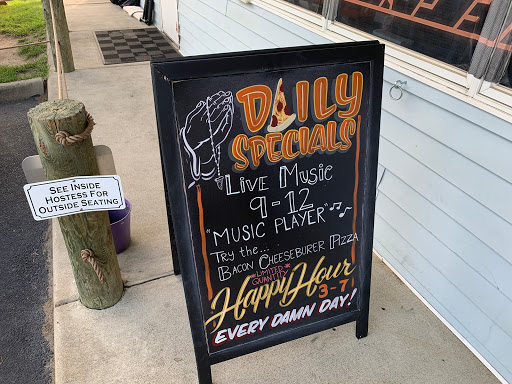 DAILY
SPECIALS
Live Music
9-12
"MUSIC PLAYER"
Try the...
Bacon Cheeseburer Pizza
*LIMITED*
QUANTITY
Happy Hour
3-7
EVERY DAMN DAY!
SEE INSIDE
HOSTESS FOR
OUTSIDE SEATING